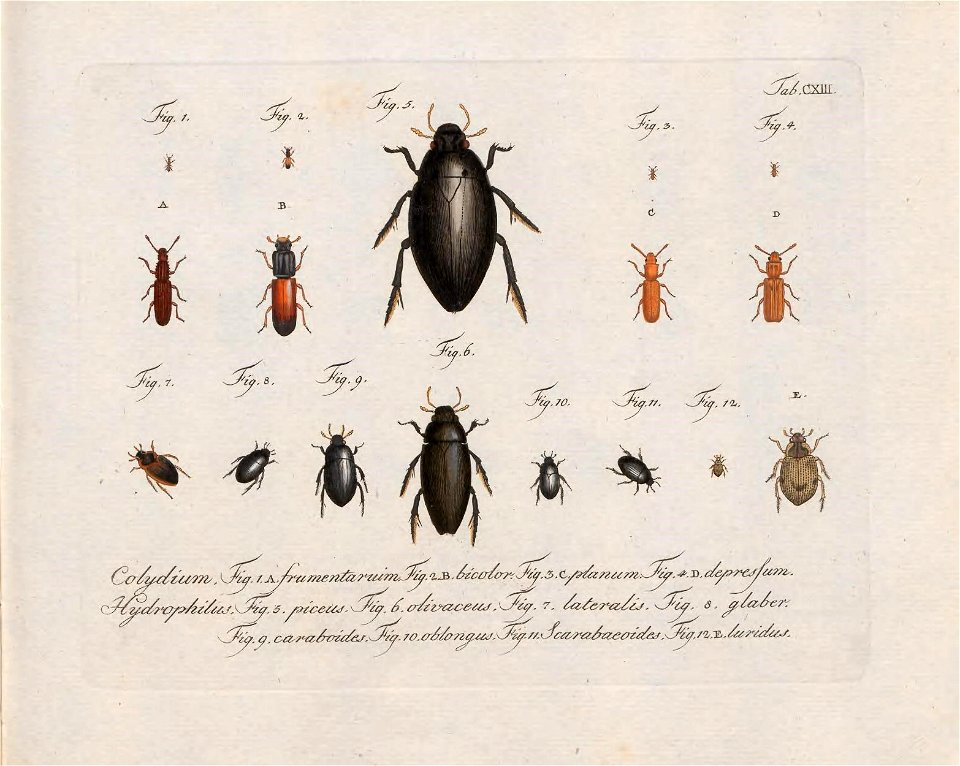 Tab. CXIII.
Fig. 1. Fig. 2. Fig. 5. Fig. 3. Fig. 4.
A B C D
Fig. 6.
Fig. 7. Fig. 8. Fig. 9. Fig. 10. Fig. 11. Fig. 12. E.
Colydium. Fig. 1. A. frumentaruim. Fig. 2. B. bicolor. Fig. 3. C. planum. Fig. 4. D. depreſsum.
Hydrophilus. Fig. 5. piceus. Fig. 6. olivaceus. Fig. 7. lateralis. Fig. 8. glaber.
Fig. 9. caraboides. Fig. 10. oblongus. Fig. 11. Scarabaeoides. Fig. 12. E. luridus.